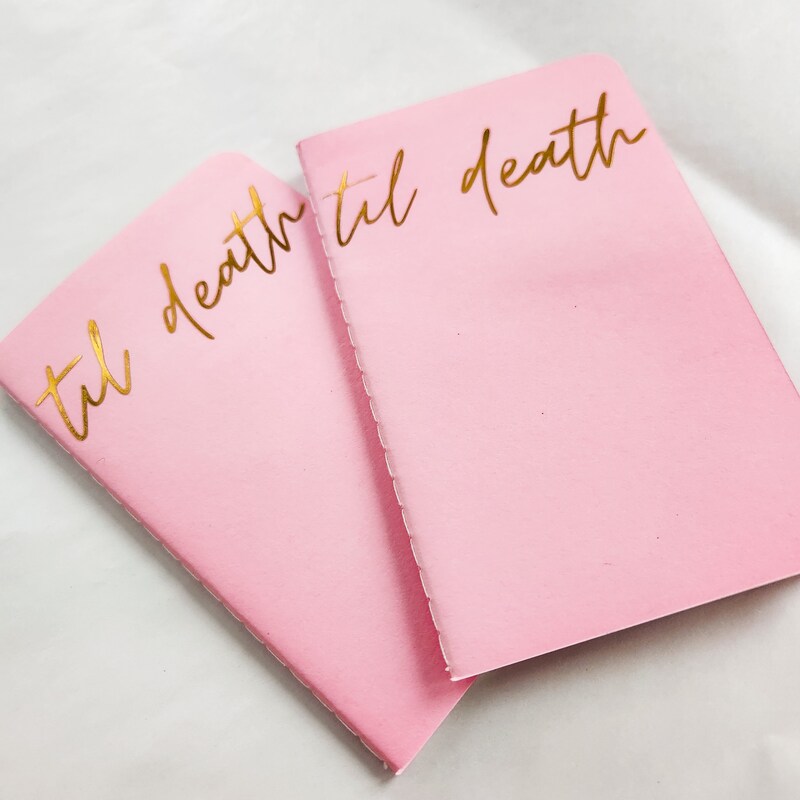 til death
til death